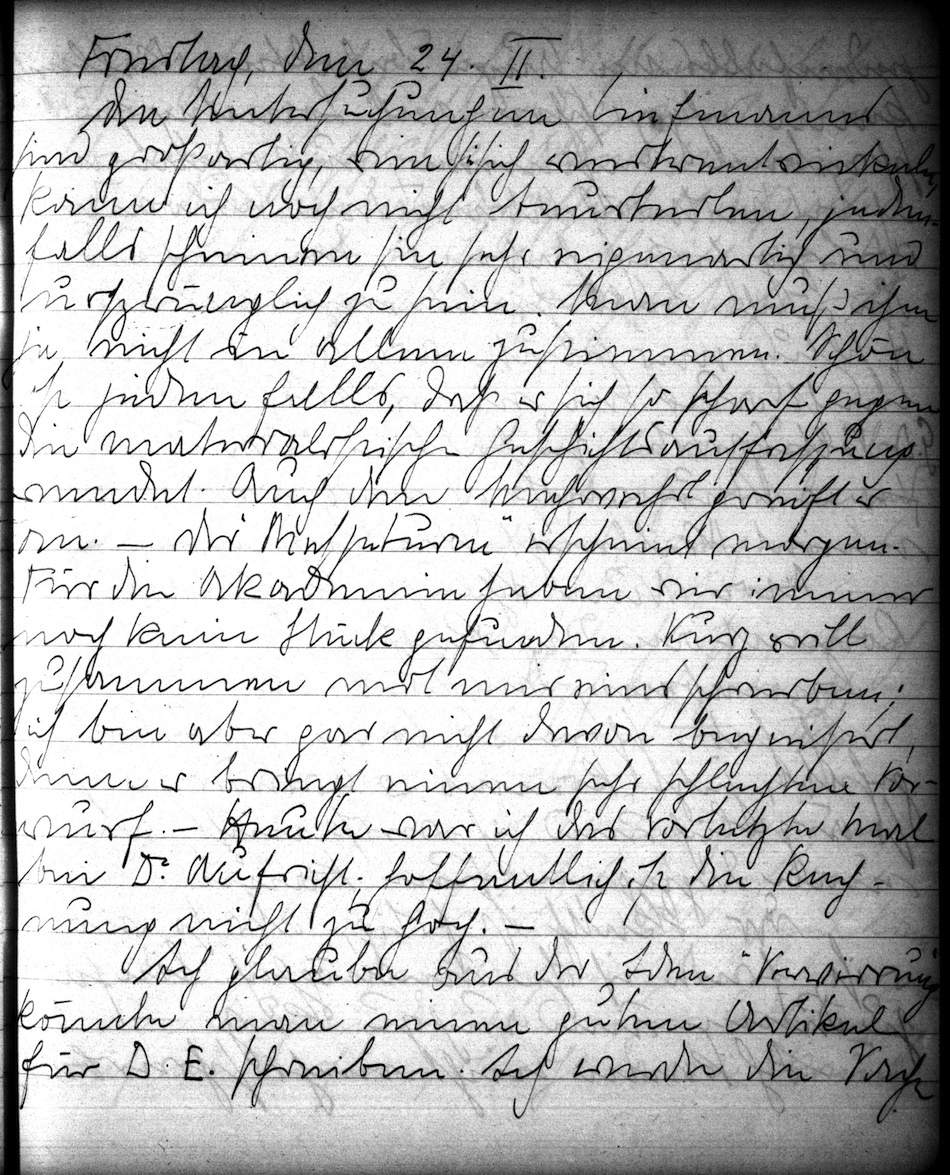 Freitag, den 24. II.
Die Untersuchungen Liefmanns
sind großartig, wie sie sich weiterentwickeln,
kann ich noch nicht beurteilen, jeden-
falls scheinen sie sehr eigenartig und
ursprünglich zu sein. Man muß ihm
ja nicht in allem zustimmen. Schön
ist jedenfalls, daß er sich so scharf gegen
die materialistische Geschichtsauffassung
wendet. Auch den Mehrwert greift er
an. — Die "Meßseturm" erscheint morgen.
Für die Akademie haben wir immer
noch kein Stück gefunden. Kurz will
zusammen mit mir eins schreiben;
ich bin aber gar nicht davon begeistert,
denn er bringt einen sehr schlechten Vor-
wurf. — Heute war ich das vorletzte Mal
bei Dr. Aufricht; hoffentlich ist die Rech-
nung nicht zu hoch. —
Ich glaube aus der Idee "Verwirrung
könnte man einen guten Artikel
für D. E. schreiben. Ich werde die